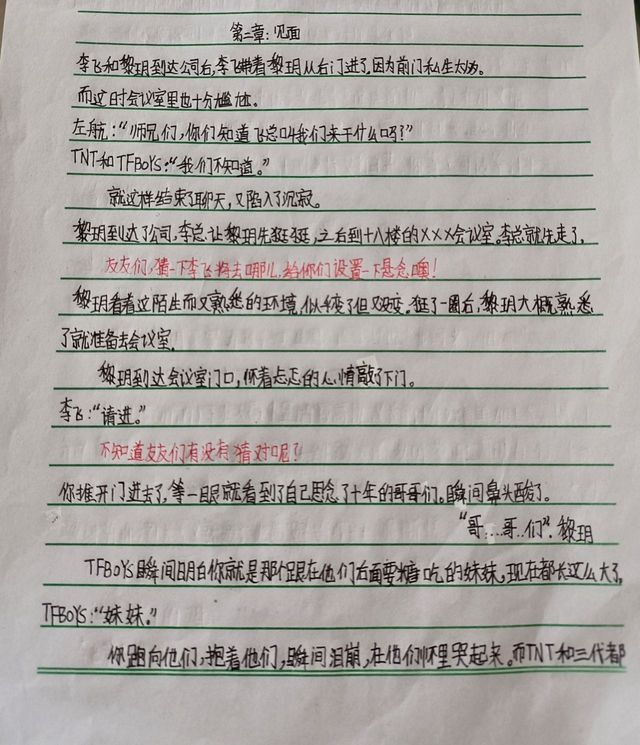 第二章:见面
李飞和黎玥到达公司后,李飞带着黎玥从后门进了,因为前门私生太多。
而这时会议室里也十分尴尬。
左航:“师兄们,你们知道飞总叫我们来干什么吗?”
TNT和TFBOYS:“我们不知道。”
就这样结束了聊天,又陷入了沉寂。
黎玥到达了公司,李总让黎玥先逛逛,之后到十八楼的XXX会议室。李总就先走了。
友友们,猜一下李飞将去哪儿,给你们设置一下悬念噢!
黎玥看着这陌生而又熟悉的环境,似乎变了但又没变。逛了一圈后,黎玥大概熟悉
了就准备去会议室。
黎玥到达会议室门口,怀着忐忑的心情敲了下门。
李飞:“请进。”
不知道友友们有没有猜对呢?
你推开门进去了,等一眼就看到了自己思念了十年的哥哥们。瞬间鼻头酸了。
“哥....哥..们”:黎玥
TFBOYS瞬间明白你就是那个跟在他们后面要糖吃的妹妹,现在都长这么大了。
TFBOYS:“妹妹。”
你跑向他们,抱着他们,瞬间泪崩,在他们怀里哭起来。而TNT和三代都